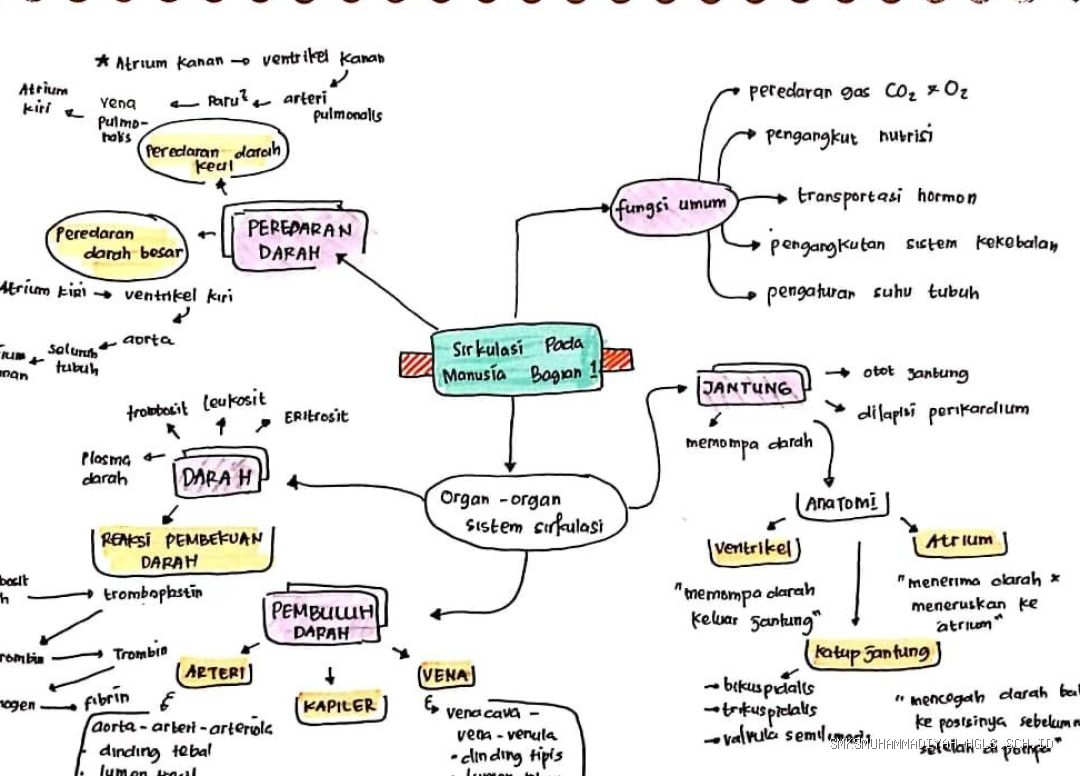 ★ Atrium kanan → ventrikel kanan
arteri pulmonalis
← Paru² ←
vena pulmo-
Atrium kiri
Peredaran darah
kecil
PEREDARAN
DARAH
Peredaran
darah besar
Atrium kiri → ventrikel kiri
aorta
seluruh
tubuh
Sirkulasi Pada
Manusia Bagian 1
fungsi umum
peredaran gas CO₂ & O₂
pengangkut nutrisi
transportasi hormon
pengangkutan sistem kekebalan
pengaturan suhu tubuh
JANTUNG
→ otot jantung
dilapisi perikardium
memompa darah
ANATOMI
Ventrikel
"memompa darah
keluar jantung"
Atrium
"menerima darah &
meneruskan ke
atrium"
Katup jantung
→ bikuspidalis
→ trikuspidalis
→ valvula
"mencegah darah
ke posisinya
setelah di pompa"
Organ-organ
sistem sirkulasi
DARAH
trombosit
leukosit
Eritrosit
Plasma
darah
REAKSI PEMBEKUAN
DARAH
→ tromboplastin
→ Trombin
→ fibrin
PEMBULUH
DARAH
ARTERI
aorta - arteri - arteriola
dinding tebal
KAPILER
VENA
vena cava -
vena - venula
• dinding tipis
SMKSMUHAMMADIYAH.NGLS.SCH.ID